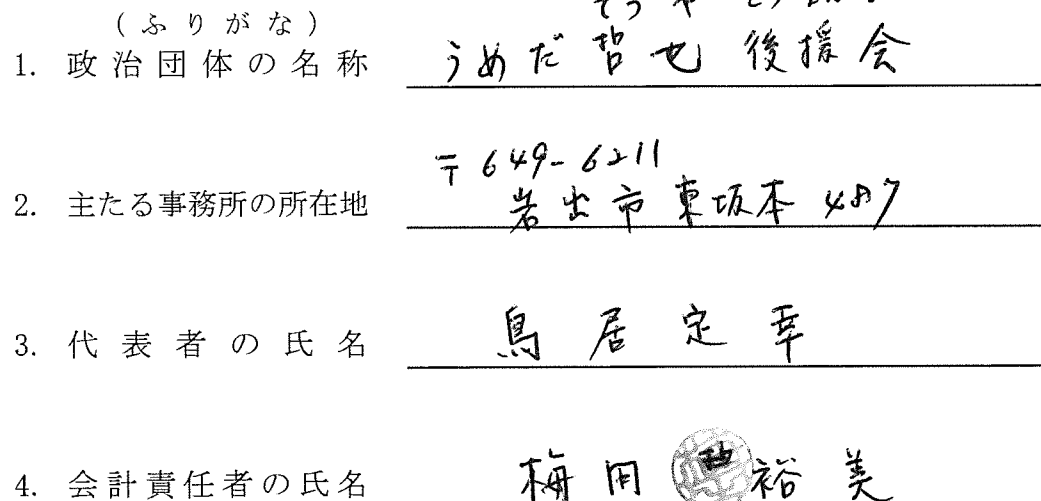 (ふりがな)
1. 政治団体の名称 うめだ哲也後援会
〒649-6211
2. 主たる事務所の所在地 岩出市東坂本 487
3. 代表者の氏名 鳥居定幸
4. 会計責任者の氏名 梅田 裕美